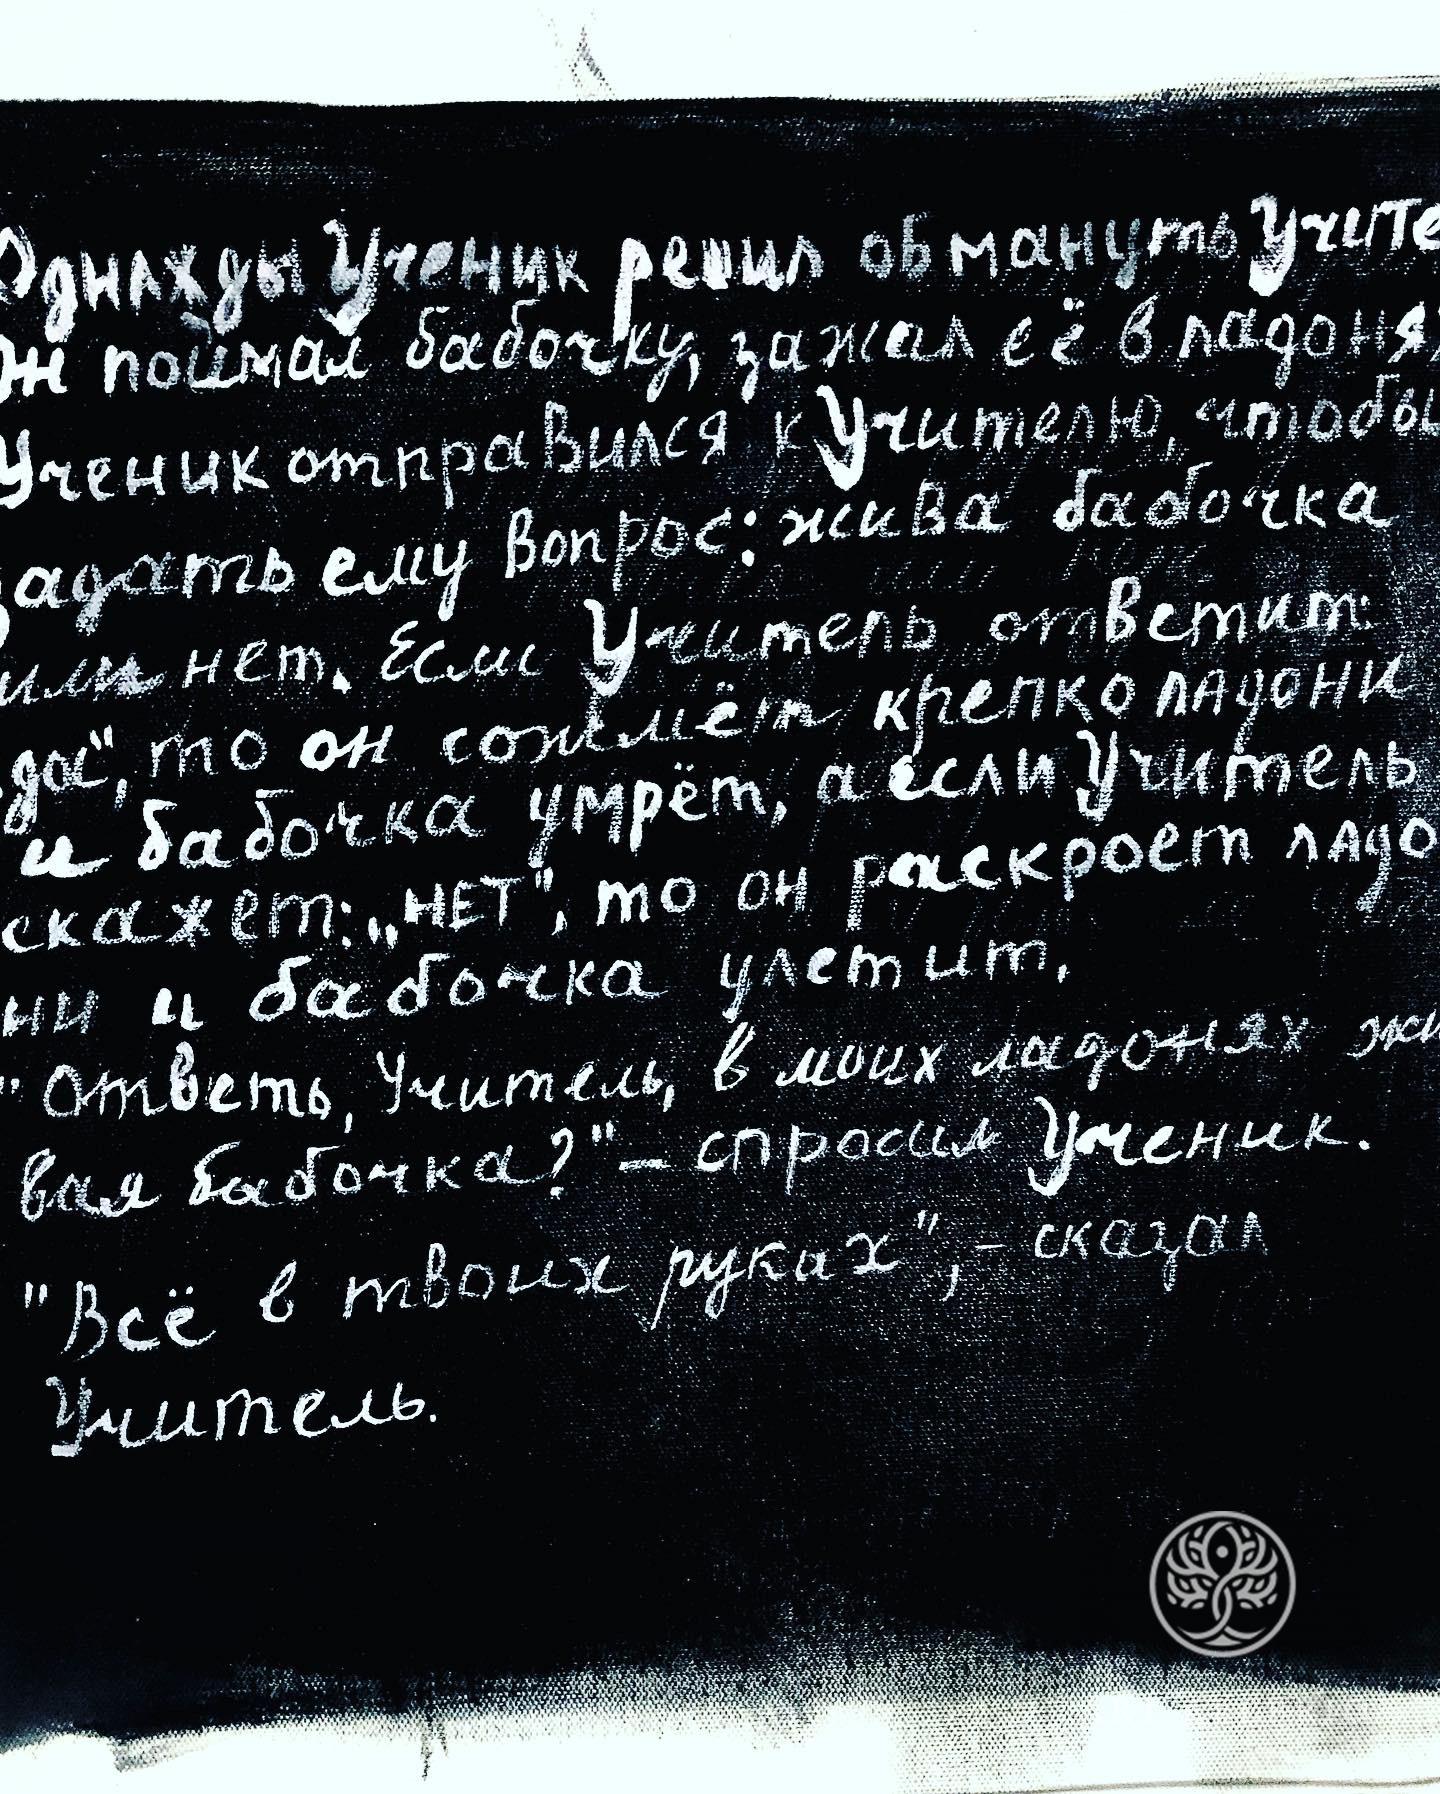 Однажды Ученик решил обмануть Учите
Он поймал бабочку, зажал её в ладонях
Ученик отправился к Учителю, чтобы
задать ему вопрос: жива бабочка
или нет. Если Учитель ответит:
"да", то он сожмёт крепко ладони
и бабочка умрёт, а если Учитель
скажет: „НЕТ", то он раскроет ладо
ни и бабочка улетит.
"Ответь, Учитель, в моих ладонях жи
вая бабочка?" – спросил Ученик.
"Всё в твоих руках", – сказал
Учитель.